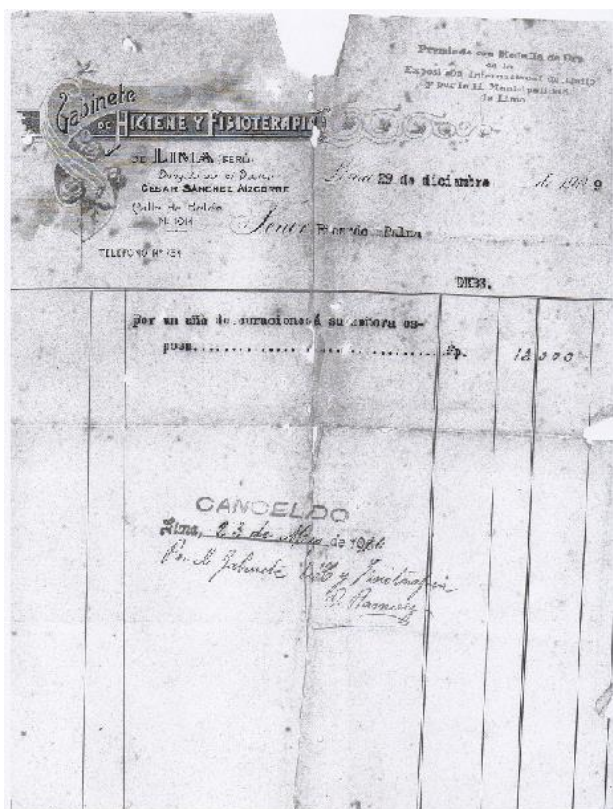 Premiado con Medalla de Oro
de la
Exposición Internacional de Quito
y por la H. Municipalidad
de Lima
Gabinete
DE HIGIENE Y FISIOTERAPIA
DE LIMA (PERÚ)
Dirigido por el Doctor
CESAR SÁNCHEZ AIZCORBE
Calle de
Nº 1014
TELEFONO Nº
Lima 29 de diciembre de 19 9
Señor Ricardo Palma
DEBE.
Por un año de curaciones á su señora es-
posa Lp. 12 000
CANCELDO
Lima, 23 de de 19
Por el Gabinete y Fisioterapia
Ramirez